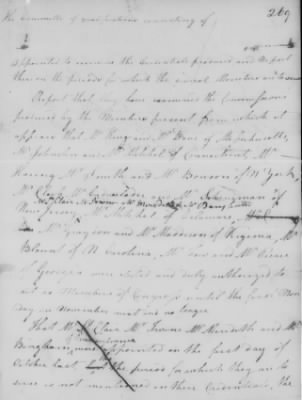 269
The Committee of qualifications consisting of
appointed to examine the Credentials produced and Report
thereon the periods for which the several Members are to
Report that, they have examined the Commissions
produced by the Members present from which it
appears that Mr King and Mr Dane of Massachusetts,
Mr Johnson and Mr Mitchel of Connecticut, Mr
Haring Mr Smith and Mr Benson of N York,
Mr Clark Mr Cadwalader and Mr Schureman of
Mr St Clair Mr Irwin Mr Meredith & Mr Bingham
New Jersey, Mr Mitchel of Delaware,
Mr Grayson and Mr Maddison of Virginia, Mr
Blount of N Carolina, Mr Few and Mr Pierce
of Georgia were elected and duly authorised to
act as Members of Congress until the first Mon
day in November next and no longer
That Mr St Clair Mr Irwine Mr Meredith and Mr
Bingham were appointed on the first day of
October last, the period for which they are to
serve is not mentioned in their Credentials, the